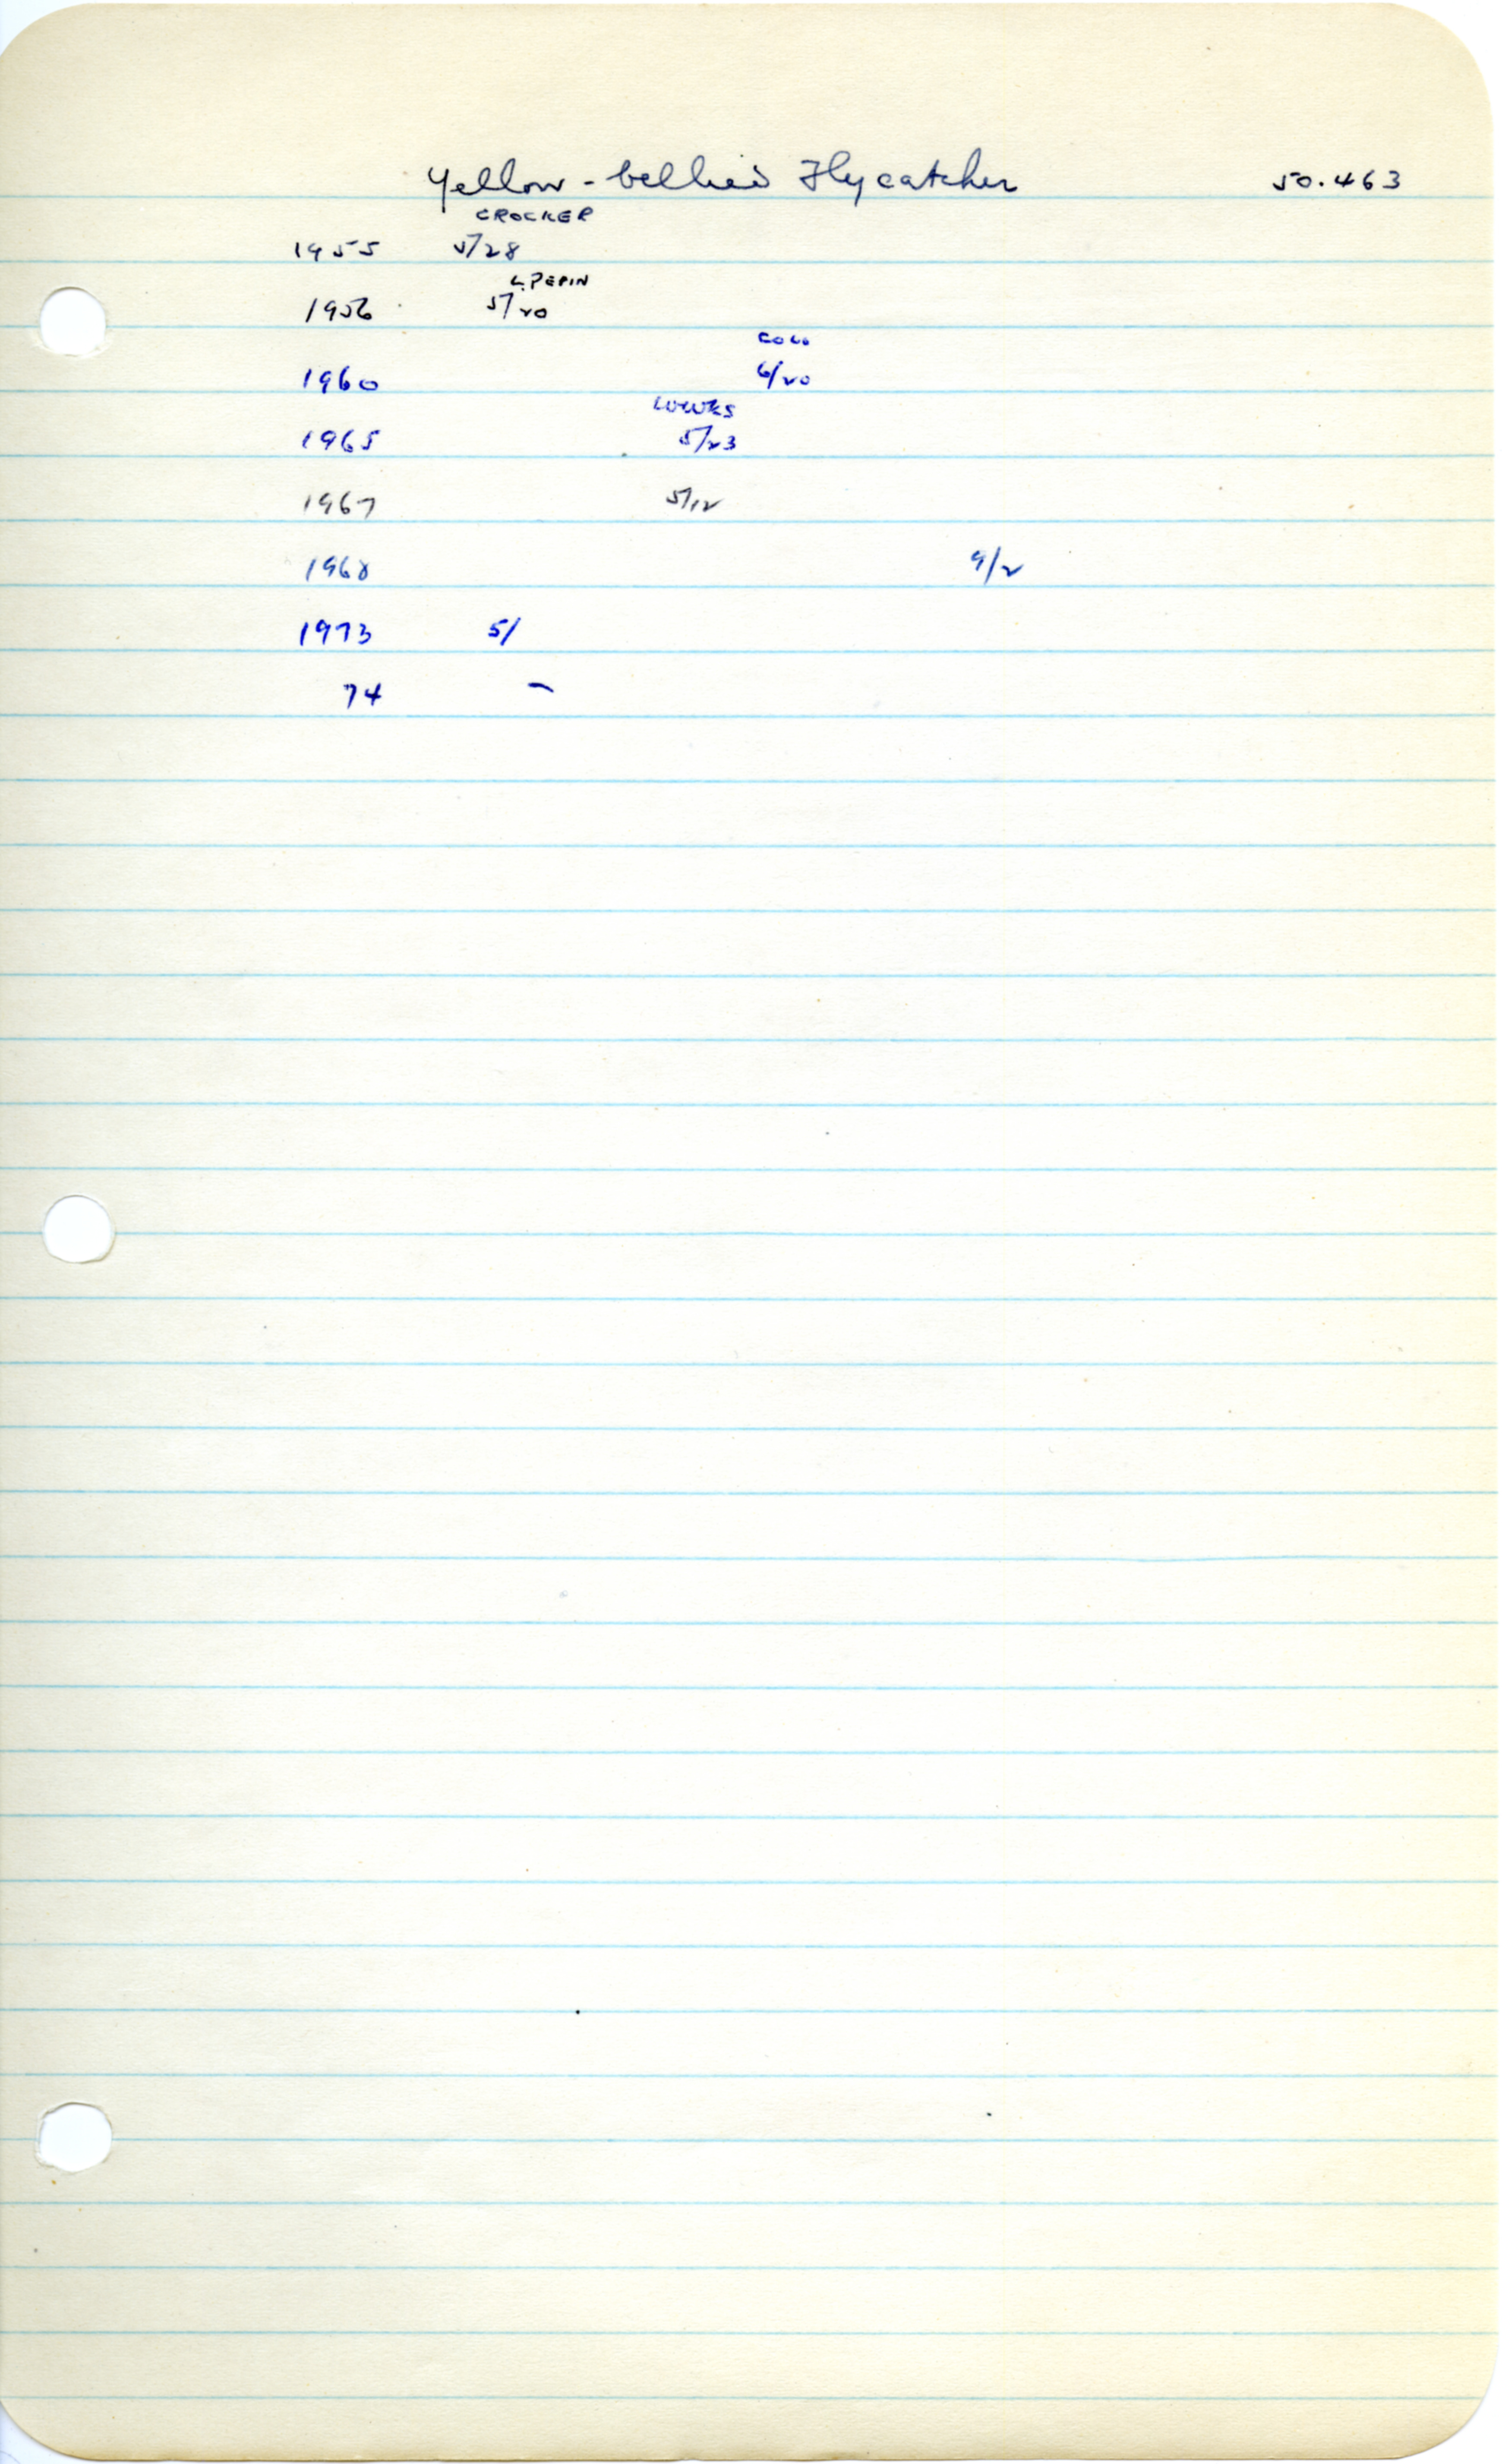 Yellow-bellied Flycatcher 50.463
CROCKER
1955 5/28
L. PEPIN
1956 5/20
1960 6/20
1965 5/23
1967 5/12
1968 9/2
1973 5/
74 -